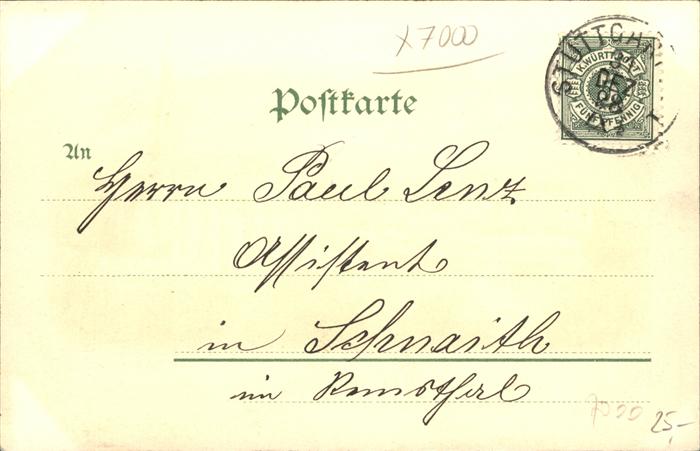 x7000
STUTTGART
31
DEZ
98
K.WÜRTT.POST
FÜNF PFENNIG
Postkarte
An
Herrn Paul Lenz
Assistent
in Schnaith
im Remsthal
7000
25,-